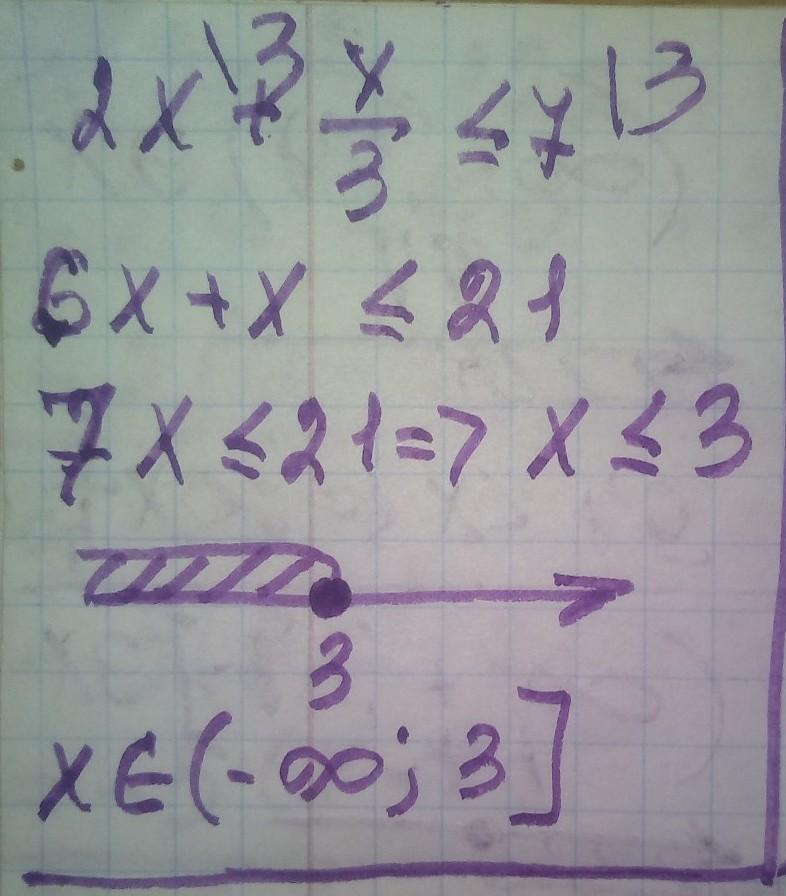 2x\3 + x/3 ≤ 7\3
6x+x ≤ 21
7x ≤ 21 => x ≤ 3
3
x∈(-∞; 3]